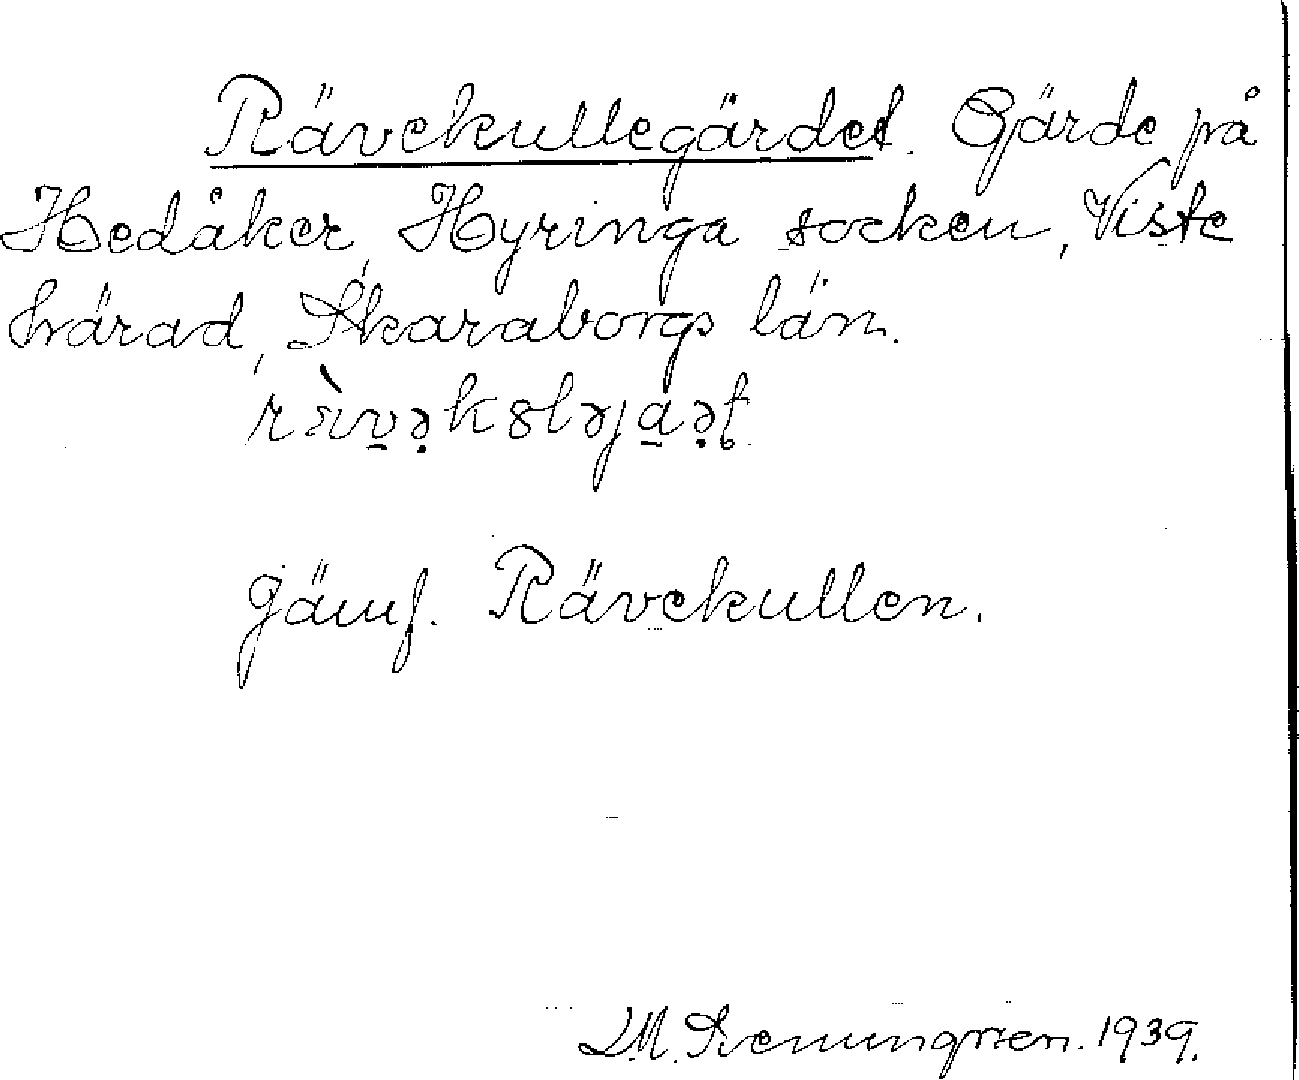 Rävekullegärdet. Gärde på
Hedåker, Hyringa socken, Viste
härad, Skaraborgs län.
Jämf. Rävekullen.
L.M. Svenungsson. 1939.